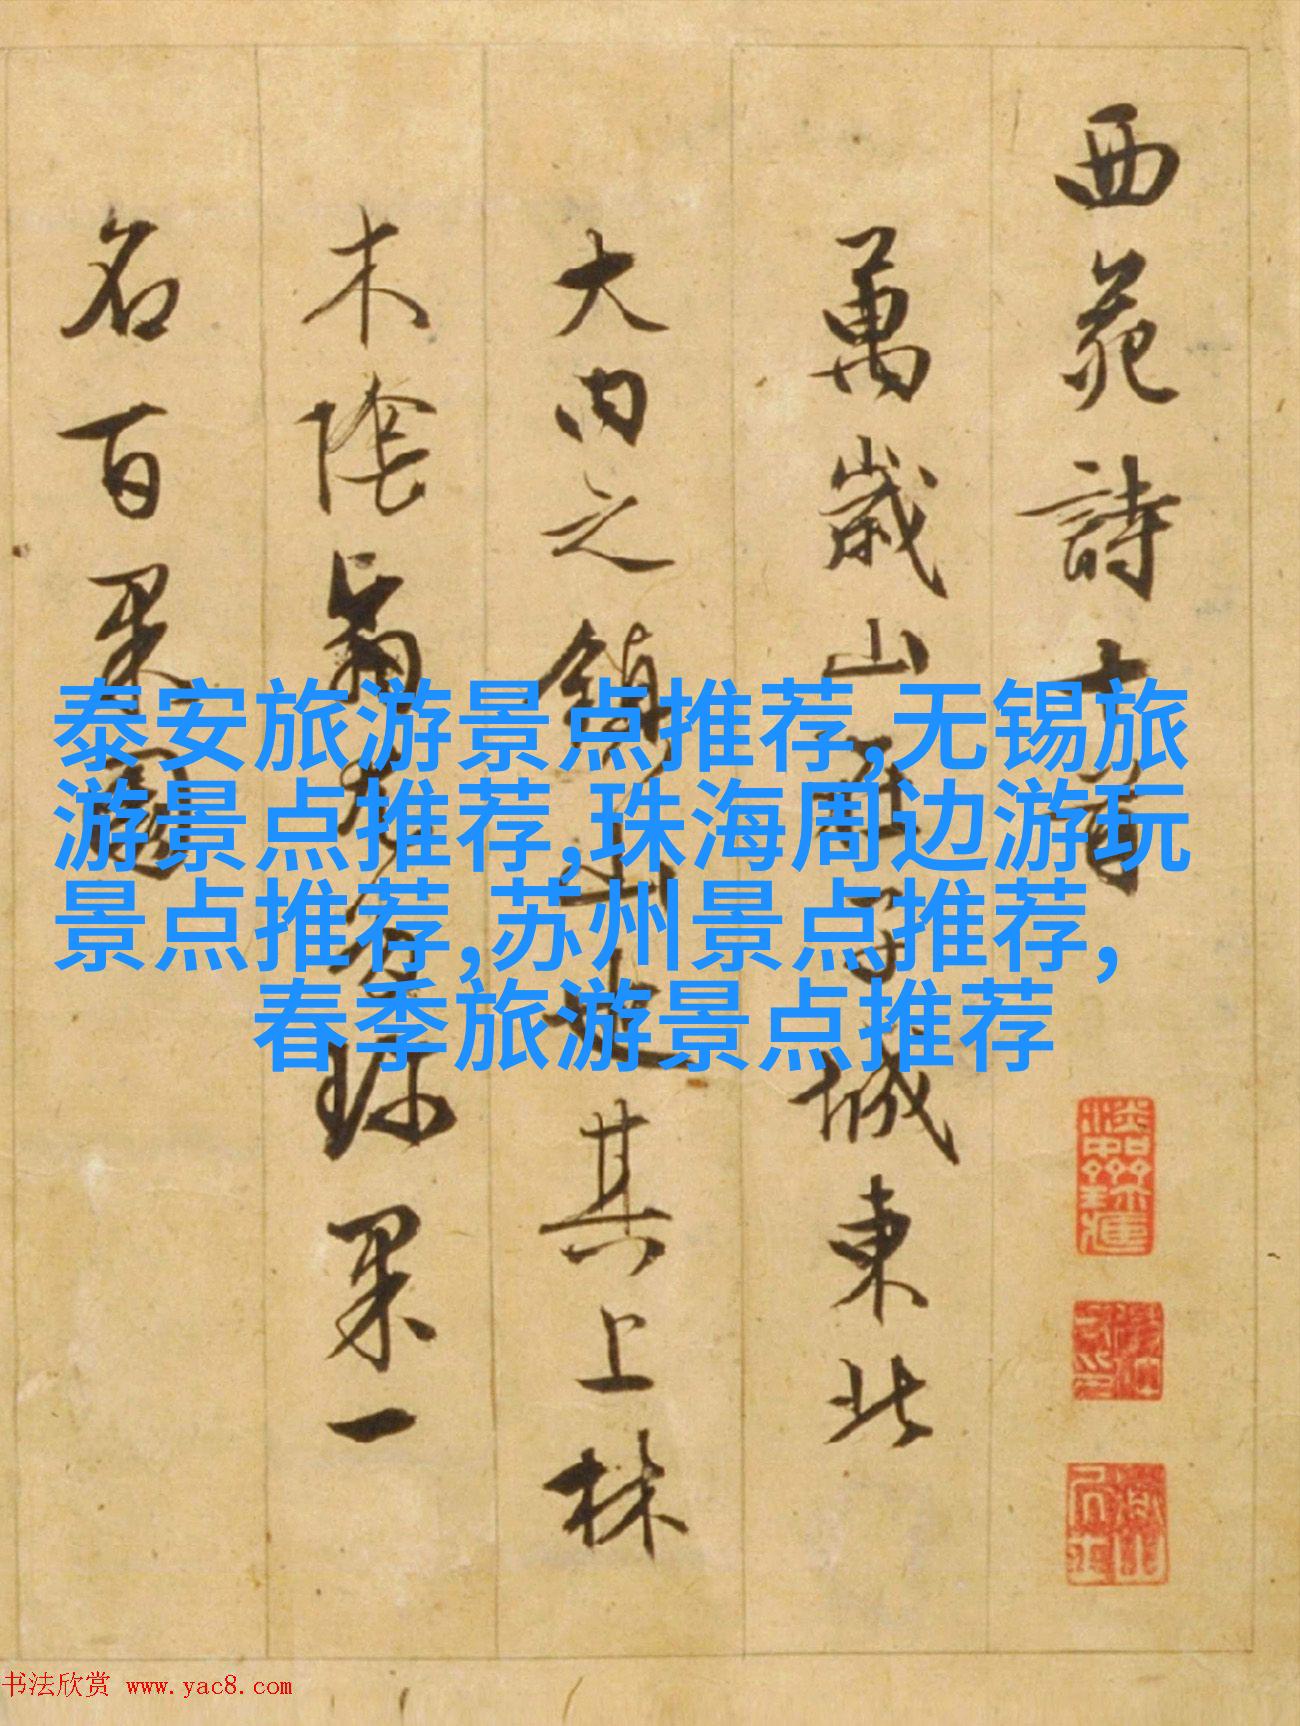 西苑詩十首
萬歲山在子城東北
大内之鎮山也其上林
木陰翳尤多珍果一
名百果園
泰安旅游景点推荐,无锡旅
游景点推荐,珠海周边游玩
景点推荐,苏州景点推荐,
春季旅游景点推荐
书法欣赏 www.yac8.com